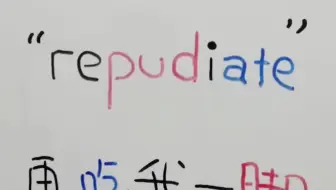 “repudiate”
再吃我一脚